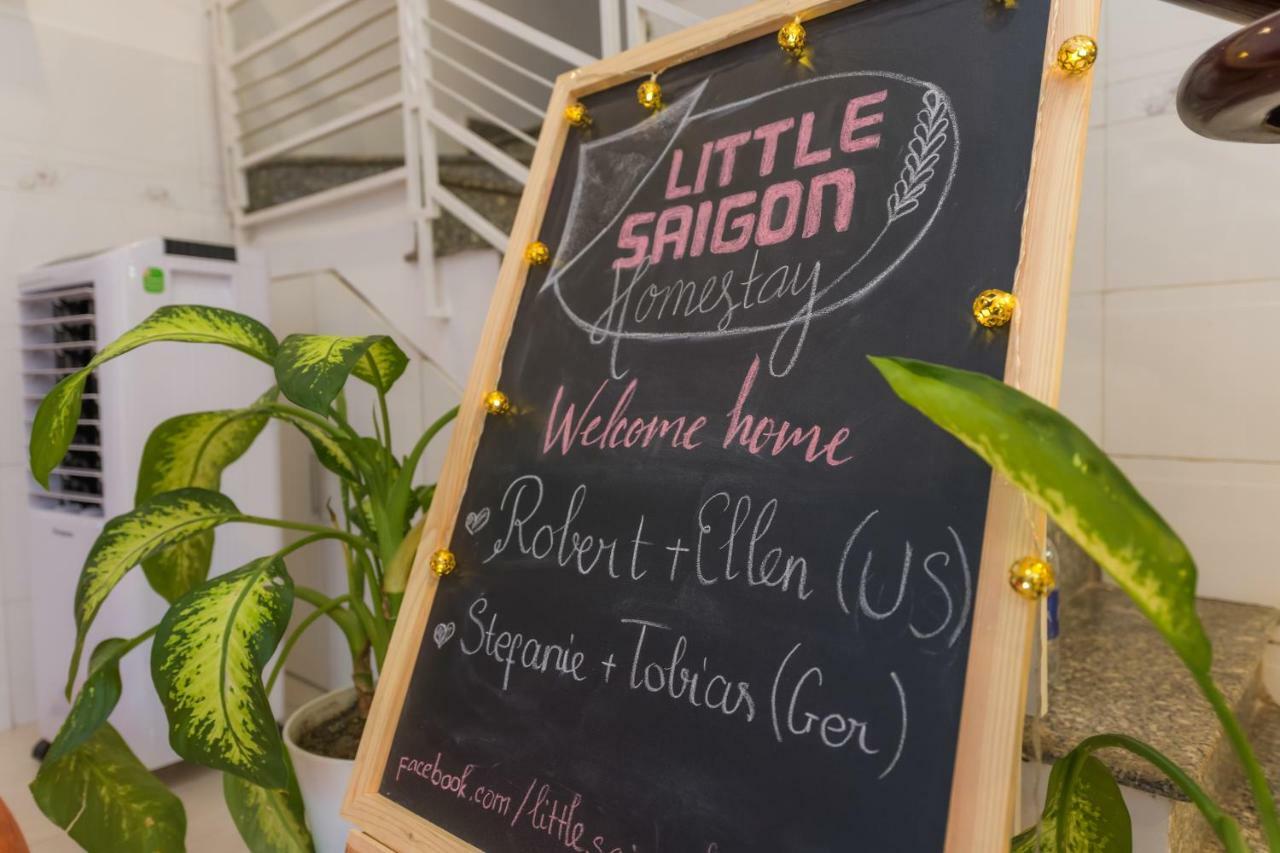 LITTLE
SAIGON
Homestay
Welcome home
Robert + Ellen (US)
Stefanie + Tobias (Ger)
facebook.com/little.